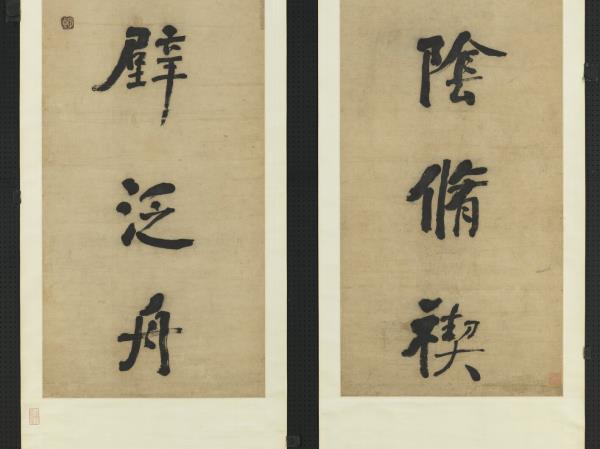 陰脩禊
壁泛舟